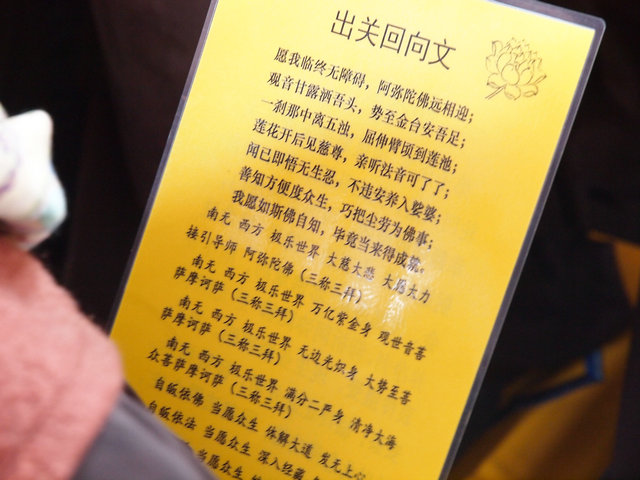 出关回向文
愿我临终无障碍，阿弥陀佛远相迎；
观音甘露洒吾头，势至金台安吾足；
一刹那中离五浊，屈伸臂顷到莲池；
莲花开后见慈尊，亲听法音可了了；
闻已即悟无生忍，不违安养入娑婆；
善知方便度众生，巧把尘劳为佛事；
我愿如斯佛自知，毕竟当来得成就。
南无 西方 极乐世界 大慈大悲 大愿大力
接引导师 阿弥陀佛（三称三拜）
南无 西方 极乐世界 万亿紫金身 观世音菩
萨摩诃萨（三称三拜）
南无 西方 极乐世界 无边光炽身 大势至菩
萨摩诃萨（三称三拜）
南无 西方 极乐世界 满分二严身 清净大海
众菩萨摩诃萨（三称三拜）
自皈依佛 当愿众生 体解大道 发无上心
自皈依法 当愿众生 深入经藏
当愿众生